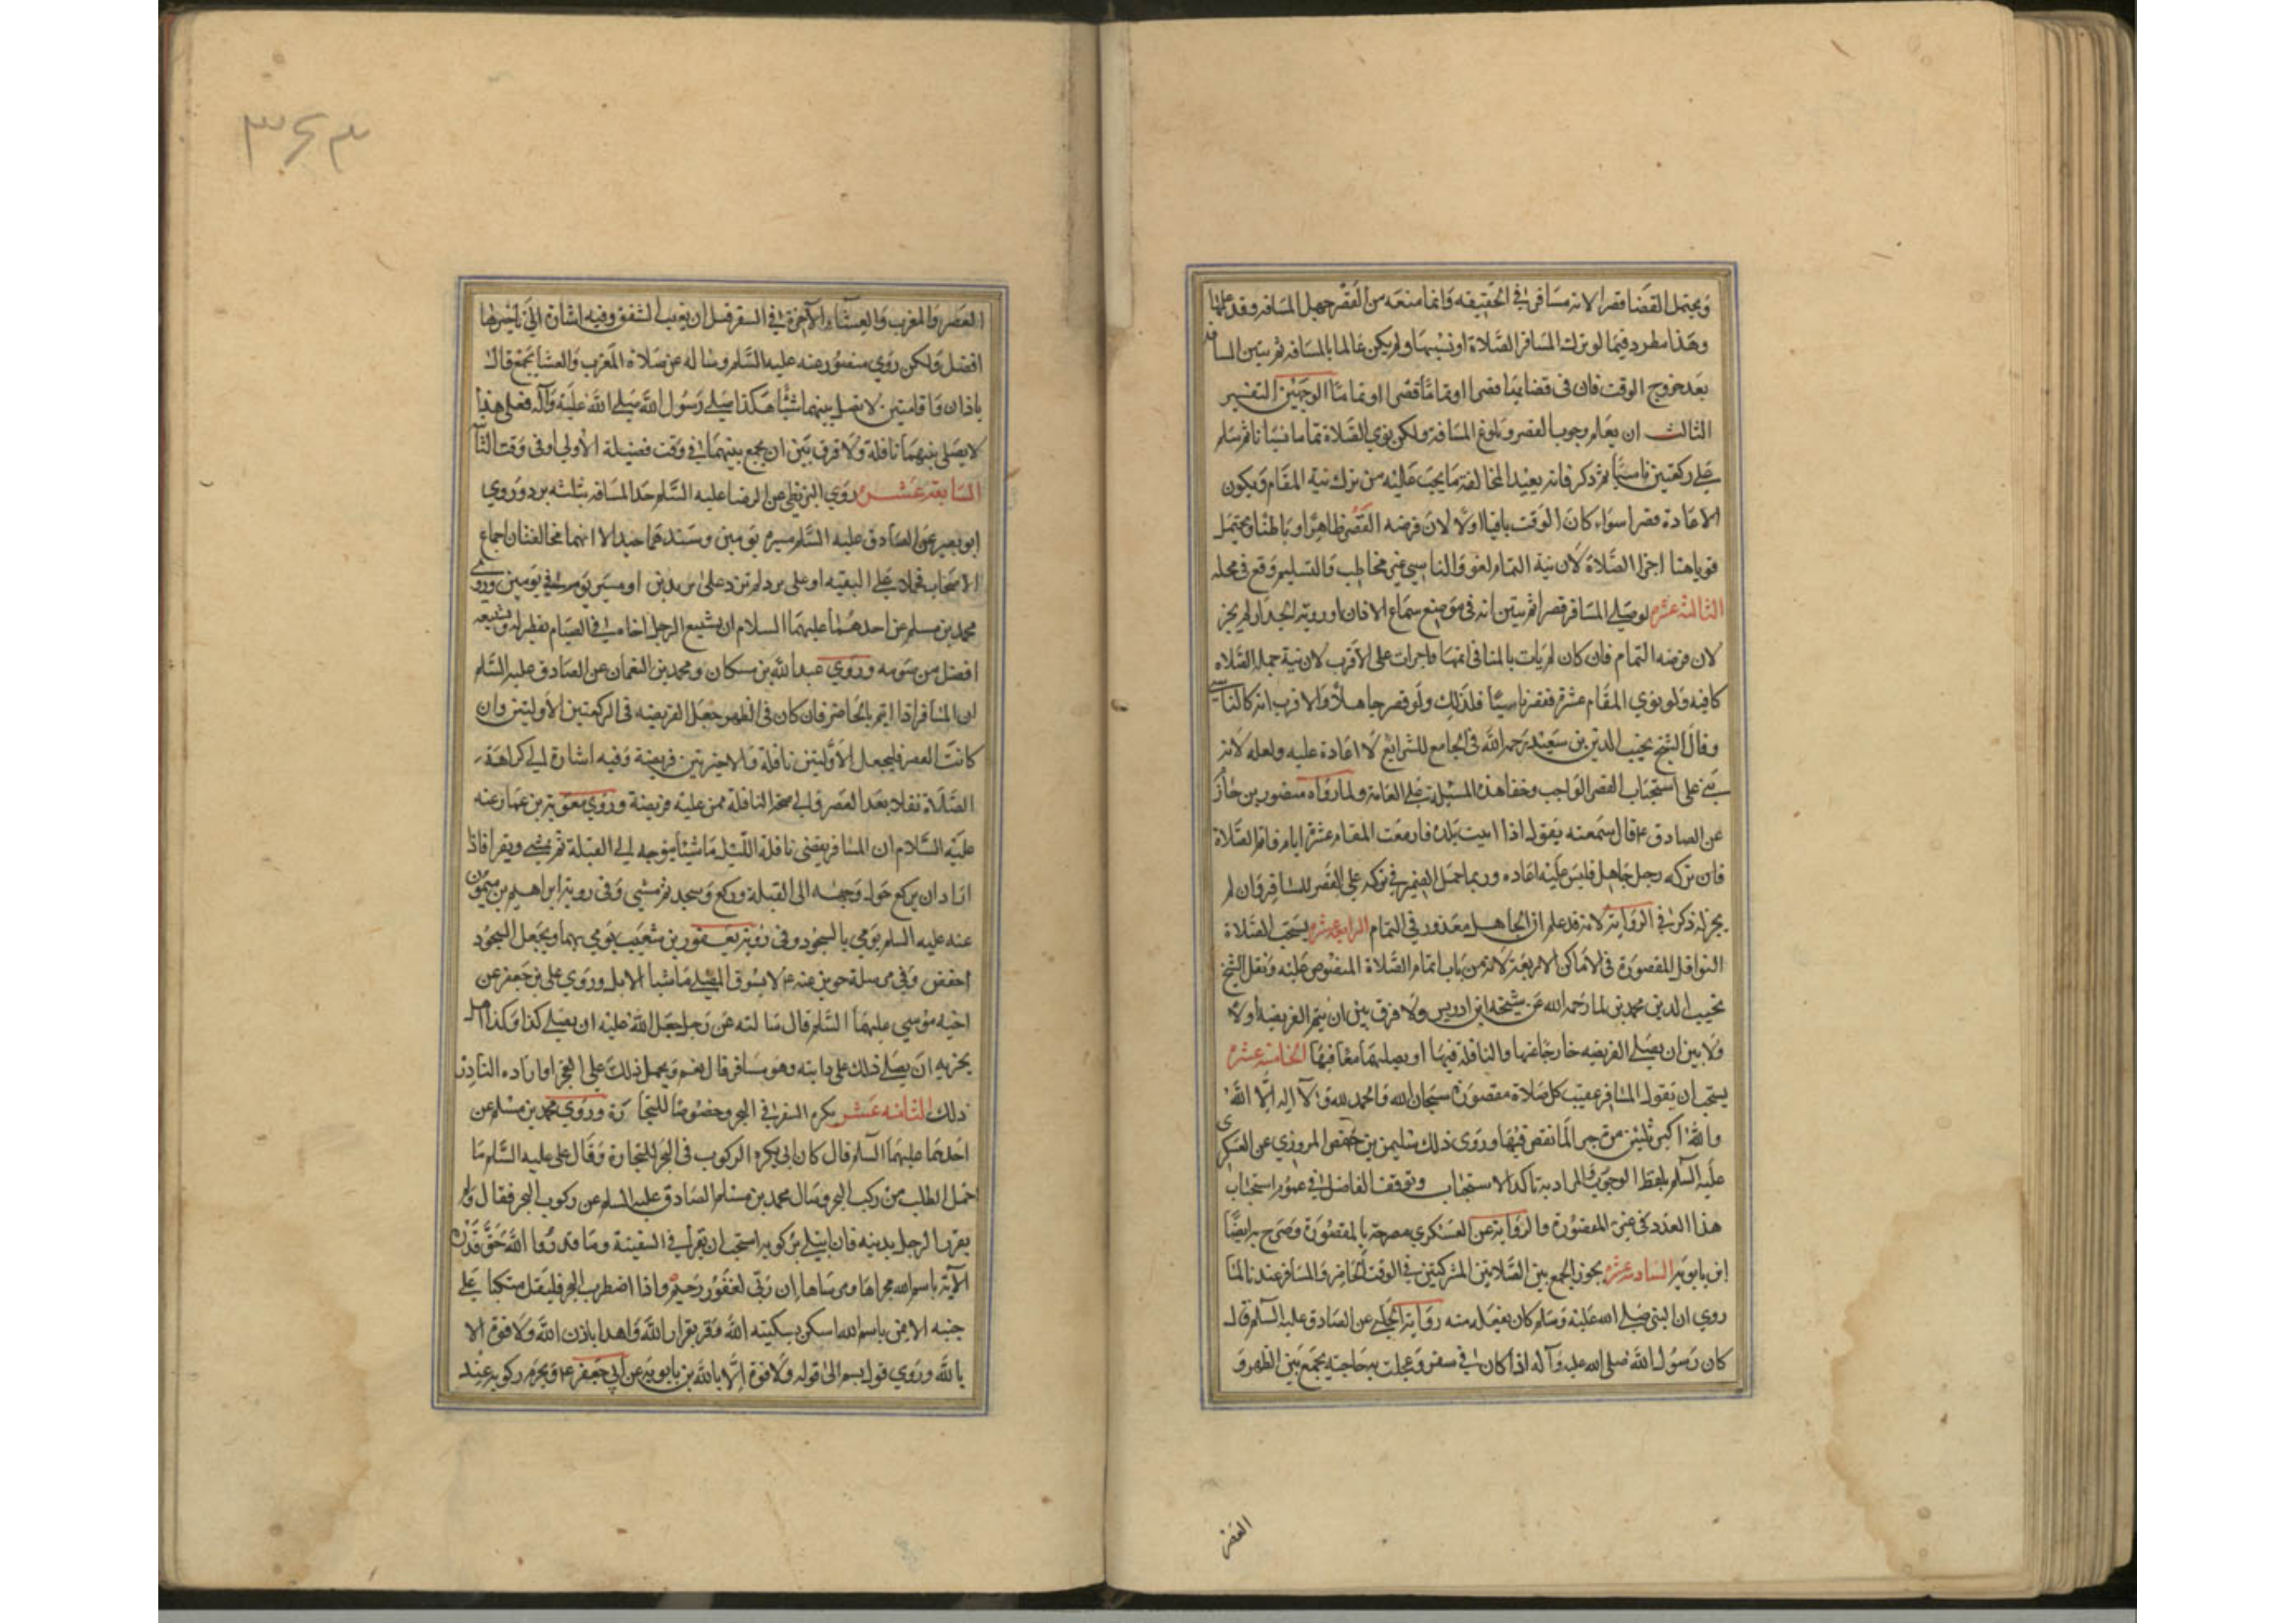 ويحتمل القضا قصرا لانه مسافر في الحقيقه وانما منعه من القصر جهل المسافه وقد علمها
وهذا مطرد فيما لو ترك المسافر الصلاة او نسيها ولم يكن عالما بالمسافه ثم تبين المسافه
بعد خروج الوقت فان في قضائها قصرا او تماما الوجهين التفسير
الثالث ان يعلم وجوب القصر وبلوغ المسافة ولكن نوي الصلاة تماما نسيانا ثم سلم
علي ركعتين ناسيا ثم ذكر فانه يعيد لمخالفته ما يجب عليه من ترك نية المقام ويكون
الاعادة قصرا سواء كان الوقت باقيا اولا لان فرضه القصر ظاهرا وباطنا ويحتمل
قويا هنا اجزا الصلاة لان نية التمام لغو والناسي غير مخاطب والتسليم وقع في محله
الثالثه عشره لو صلي المسافر قصرا ثم تبين انه في موضع سماع الاذان او رويه الجدر لم يجز
لان فرضه التمام فان كان لم يات بالمنافي اتمها واجزات على الاقرب لان نية جمله الصلاه
كافيه ولو نوي المقام عشرة فقصر ناسيا فلذلك ولو قصر جاهلا فالاقرب انه كالناسي
وقال الشيخ نجيب الدين بن سعيد رحمه الله في الجامع للشرايع لا اعادة عليه ولعله لانه
بني على استحباب القصر الواجب وخفا هذه المسئله علي العامه ولما رواه منصور بن حازم
عن الصادق ع قال سمعته يقول اذا اتيت بلده فازمعت المقام عشرة ايام فاتم الصلاة
فان تركه رجل جاهل فليس عليه اعاده وربما احتمل الضمير في تركه علي القصر للمسافر وان لم
يجز له ذكر في الرواية لانه قد علم ان الجاهل معذور في التمام الرابعه عشره يستحب الصلاة
النوافل المقصورة في الاماكن الاربعة لانه من باب اتمام الصلاة المنصوص عليه ونقل الشيخ
نجيب الدين محمد بن نما رحمه الله عن شيخه ابن ادريس ولا فرق بين ان يتم الفريضه اولا
ولا بين ان يصلي الفريضه خارجا عنها والنافلة فيها او يصليهما معا فيها الخامسه عشره
يستحب ان يقول المسافر عقيب كل صلاة مقصورة سبحان الله والحمد لله ولا اله الا الله
والله اكبر ثلثين مرة جبرا لما نقص فيها وروى ذلك سليمن بن حفص المروزي عن العسكري
عليه السلم بلفظ الوجوب والمراد به تاكد الاستحباب وتوقف الفاضل في عموم استحباب
هذا العدد في غير المقصورة والرواية عن العسكري مصرحة بالمقصورة وصرح به ايضا
ابن بابويه السادسه عشره يجوز الجمع بين الصلاتين المشتركتين في الوقت للحاضر والمسافر عندنا لما
روي ان النبي صلي الله عليه وسلم كان يفعله منه رواية الحلبي عن الصادق عليه السلم قال
كان رسول الله صلى الله عليه وآله اذا كان في سفر وعجلت به حاجته يجمع بين الظهر و
العصر
٣٤٣
العصر والمغرب والعشاء الآخرة في السفر قبل ان يغيب الشفق وفيه اشارة الى تاخيرها
افضل ولكن روي منصور عنه عليه السلم وساله عن صلاة المغرب والعشا بجمع قال
باذان واقامتين لا تصل بينهما شيئا هكذا صلي رسول الله صلي الله عليه وآله فعلي هذا
لا يصلي بينهما نافلة ولا فرق بين ان يجمع بينهما في وقت فضيلة الاولي او في وقت الثانيه
السابعه عشره روي البزنطي عن الرضا عليه السلم حد المسافه بثلثه برد وروي
ابو بصير عن الصادق عليه السلم مسيره يومين وسندهما جيد الا انهما مخالفتان اجماع
الاصحاب فحملا علي التقيه او على برد لم تزد على بريدين او مسير يوم في يومين وروي
محمد بن مسلم عن احدهما عليهما السلام ان يشيع الرجل اخاه في الصيام يفطر له وتشييعه
افضل من صومه وروي عبد الله بن مسكان ومحمد بن النعمان عن الصادق عليه السلم
ان المسافر اذا ايتم بالحاضر فان كان في الظهر جعل الفريضه في الركعتين الاوليتين وان
كانت العصر فليجعل الاوليتين نافلة والاخيرتين فريضة وفيه اشارة الي كراهة
الصلاة نفلا بعد العصر والي صحة النافلة ممن عليه فريضة وروي معوية بن عمار عنه
عليه السلام ان المسافر يقضي نافلة الليل ماشيا يتوجه الي القبلة ثم يمشي ويقرا فاذا
اراد ان يركع حول وجهه الى القبلة وركع وسجد ثم مشي وفي رويه ابراهيم بن ميمون
عنه عليه السلم يومي بالسجود وفي روية يعقوب بن شعيب يومي بهما ويجعل السجود
اخفض وفي مرسلة حريز عنه ع لا يسوق المصلي ماشيا الابل وروي علي بن جعفر عن
اخيه موسي عليهما السلم قال سالته عن رجل جعل الله عليه ان يصلي كذا وكذا هل
يجزيه ان يصلي ذلك على دابته وهو مسافر قال نعم ويحمل ذلك على العجز او اراده الناذر
ذلك الثامنه عشر يكره السفر في البحر وخصوصا للتجارة وروي محمد بن مسلم عن
احدهما عليهما السلم قال كان ابي يكره الركوب في البحر للتجارة وقال علي عليه السلم ما
اجمل الطلب من ركب البحر وسال محمد بن مسلم الصادق عليه السلم عن ركوب البحر فقال ولم
يغرر الرجل بدينه فان ابتلي بركوبه استحب ان يقرا في السفينة وما قدروا الله حق قدره
الآية باسم الله مجراها ومرساها ان ربي لغفور رحيم واذا اضطرب البحر فليقل متكيا علي
جنبه الايمن باسم الله اسكن بسكينه الله وقر بقرار الله واهدا باذن الله ولا قوة الا
بالله وروي قول بسم الى قوله ولا قوة الا بالله بن بابويه عن ابي جعفر ع ويحرم ركوبه عند